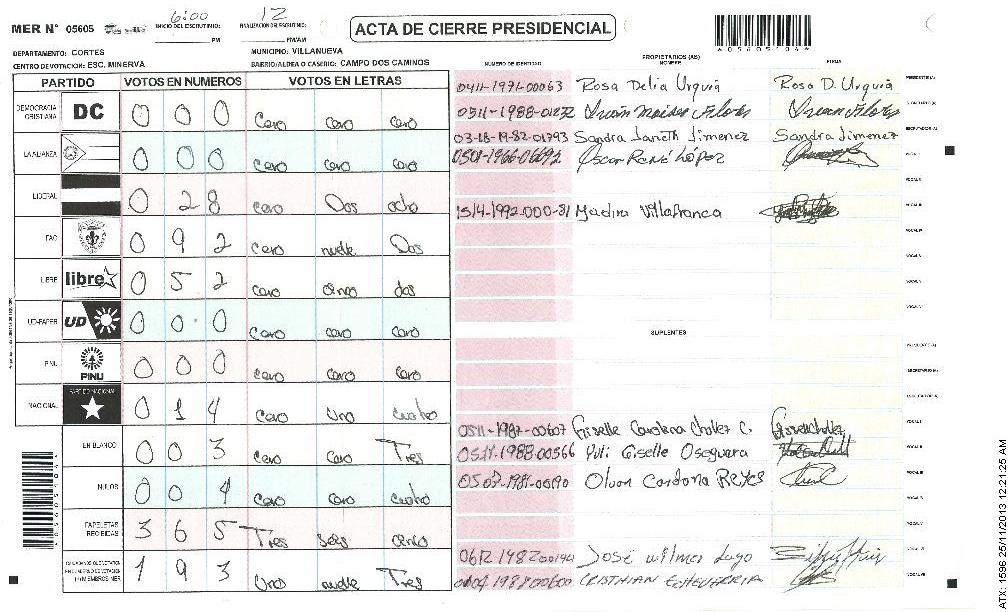 MER N° 05605
6:00
INICIO DEL ESCRUTINIO:
PM
12
FINALIZACION DEL ESCRUTINIO:
PM/AM
ACTA DE CIERRE PRESIDENCIAL
DEPARTAMENTO: CORTES
MUNICIPIO: VILLANUEVA
CENTRO DE VOTACION: ESC. MINERVA
BARRIO/ALDEA O CASERIO: CAMPO DOS CAMINOS
PARTIDO VOTOS EN NUMEROS VOTOS EN LETRAS
DEMOCRACIA CRISTIANA DC 0 0 0 Cero Cero Cero
LA ALIANZA 0 0 0 Cero Cero Cero
LIBERAL 0 2 8 Cero Dos ocho
PAC 0 9 2 Cero nueve Dos
LIBRE libre 0 5 2 Cero cinco dos
UD-FAPER UD 0 0 0 Cero Cero Cero
PINU PINU 0 0 0 Cero Cero Cero
NACIONAL PARTIDO NACIONAL 0 1 4 Cero Uno Cuatro
EN BLANCO 0 0 3 Cero Cero Tres
NULOS 0 0 4 Cero Cero Cuatro
PAPELETAS RECIBIDAS 3 6 5 Tres Seis Cinco
1 9 3 Uno nueve Tres
NUMERO DE IDENTIDAD
PROPIETARIOS (AS)
NOMBRE
FIRMA
0411-1971-00063 Rosa Delia Urquia Rosa D. Urquia
0511-1988-01272 Moises Flores Flores
03-18-19-82-01793 Sandra Janeth Jimenez Sandra Jimenez
0501-1966-06692 Oscar René López
1514-1992-000-31 Madira Villafranca
SUPLENTES
0511-1987-00607 Giselle Carolina Chollez C.
0511-1988-00566 Yuli Giselle Oseguera
0507-1981-00190 Olvan Cardona Reyes
0612 1982 00190 José Wilmer Lago
CRISTHIAN ECHEVERRIA
ATX: 1596 25/11/2013 12:21:25 AM